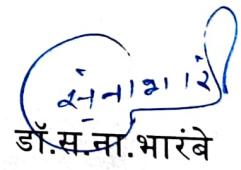 सं ना भारं
डॉ.स.ना.भारंबे